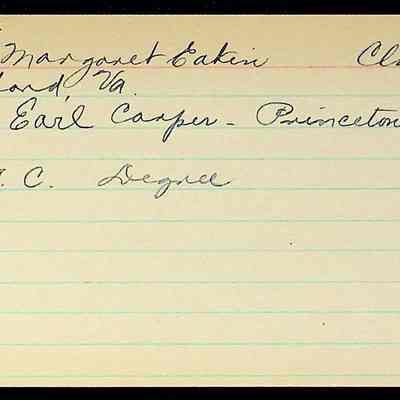 Margaret Eakin Cl
land, Va.
Earl Carper - Princeton
. C. Degree